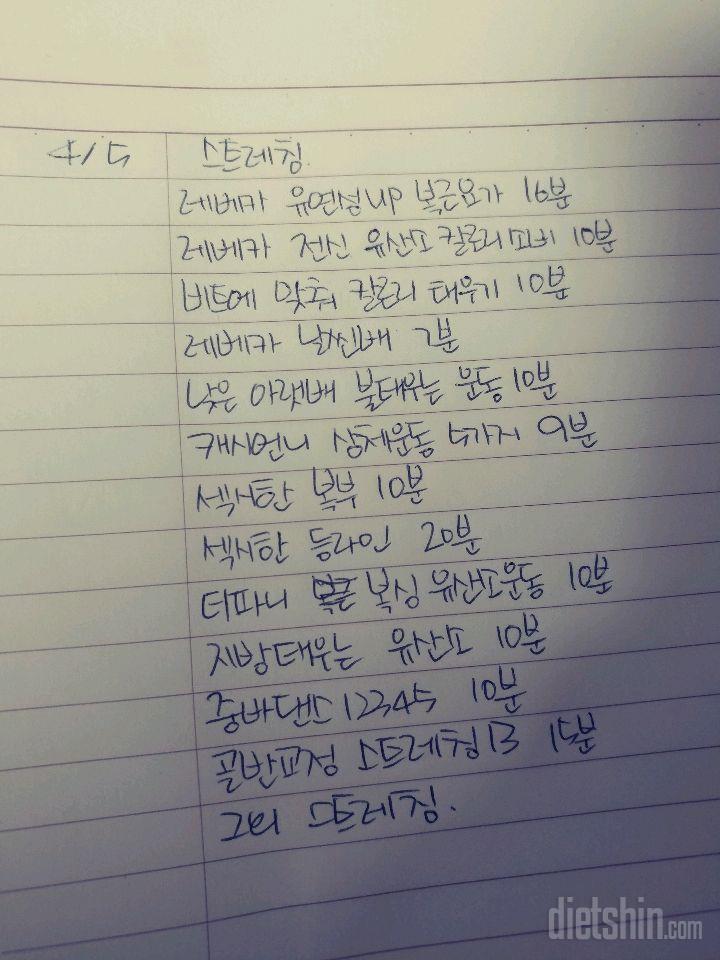 4/5 스트레칭.
레베카 유연성UP 복근요가 16분
레베카 전신 유산소 칼로리소비 10분
비트에 맞춰 칼로리 태우기 10분
레베카 날씬배 7분
낮은 아랫배 불태우는 운동 10분
캐시언니 상체운동 5가지 9분
섹시한 복부 10분
섹시한 등라인 20분
티파니 복싱 유산소운동 10분
지방태우는 유산소 10분
줌바댄스12345 10분
골반교정 스트레칭13 15분
그외 스트레칭.
dietshin.com